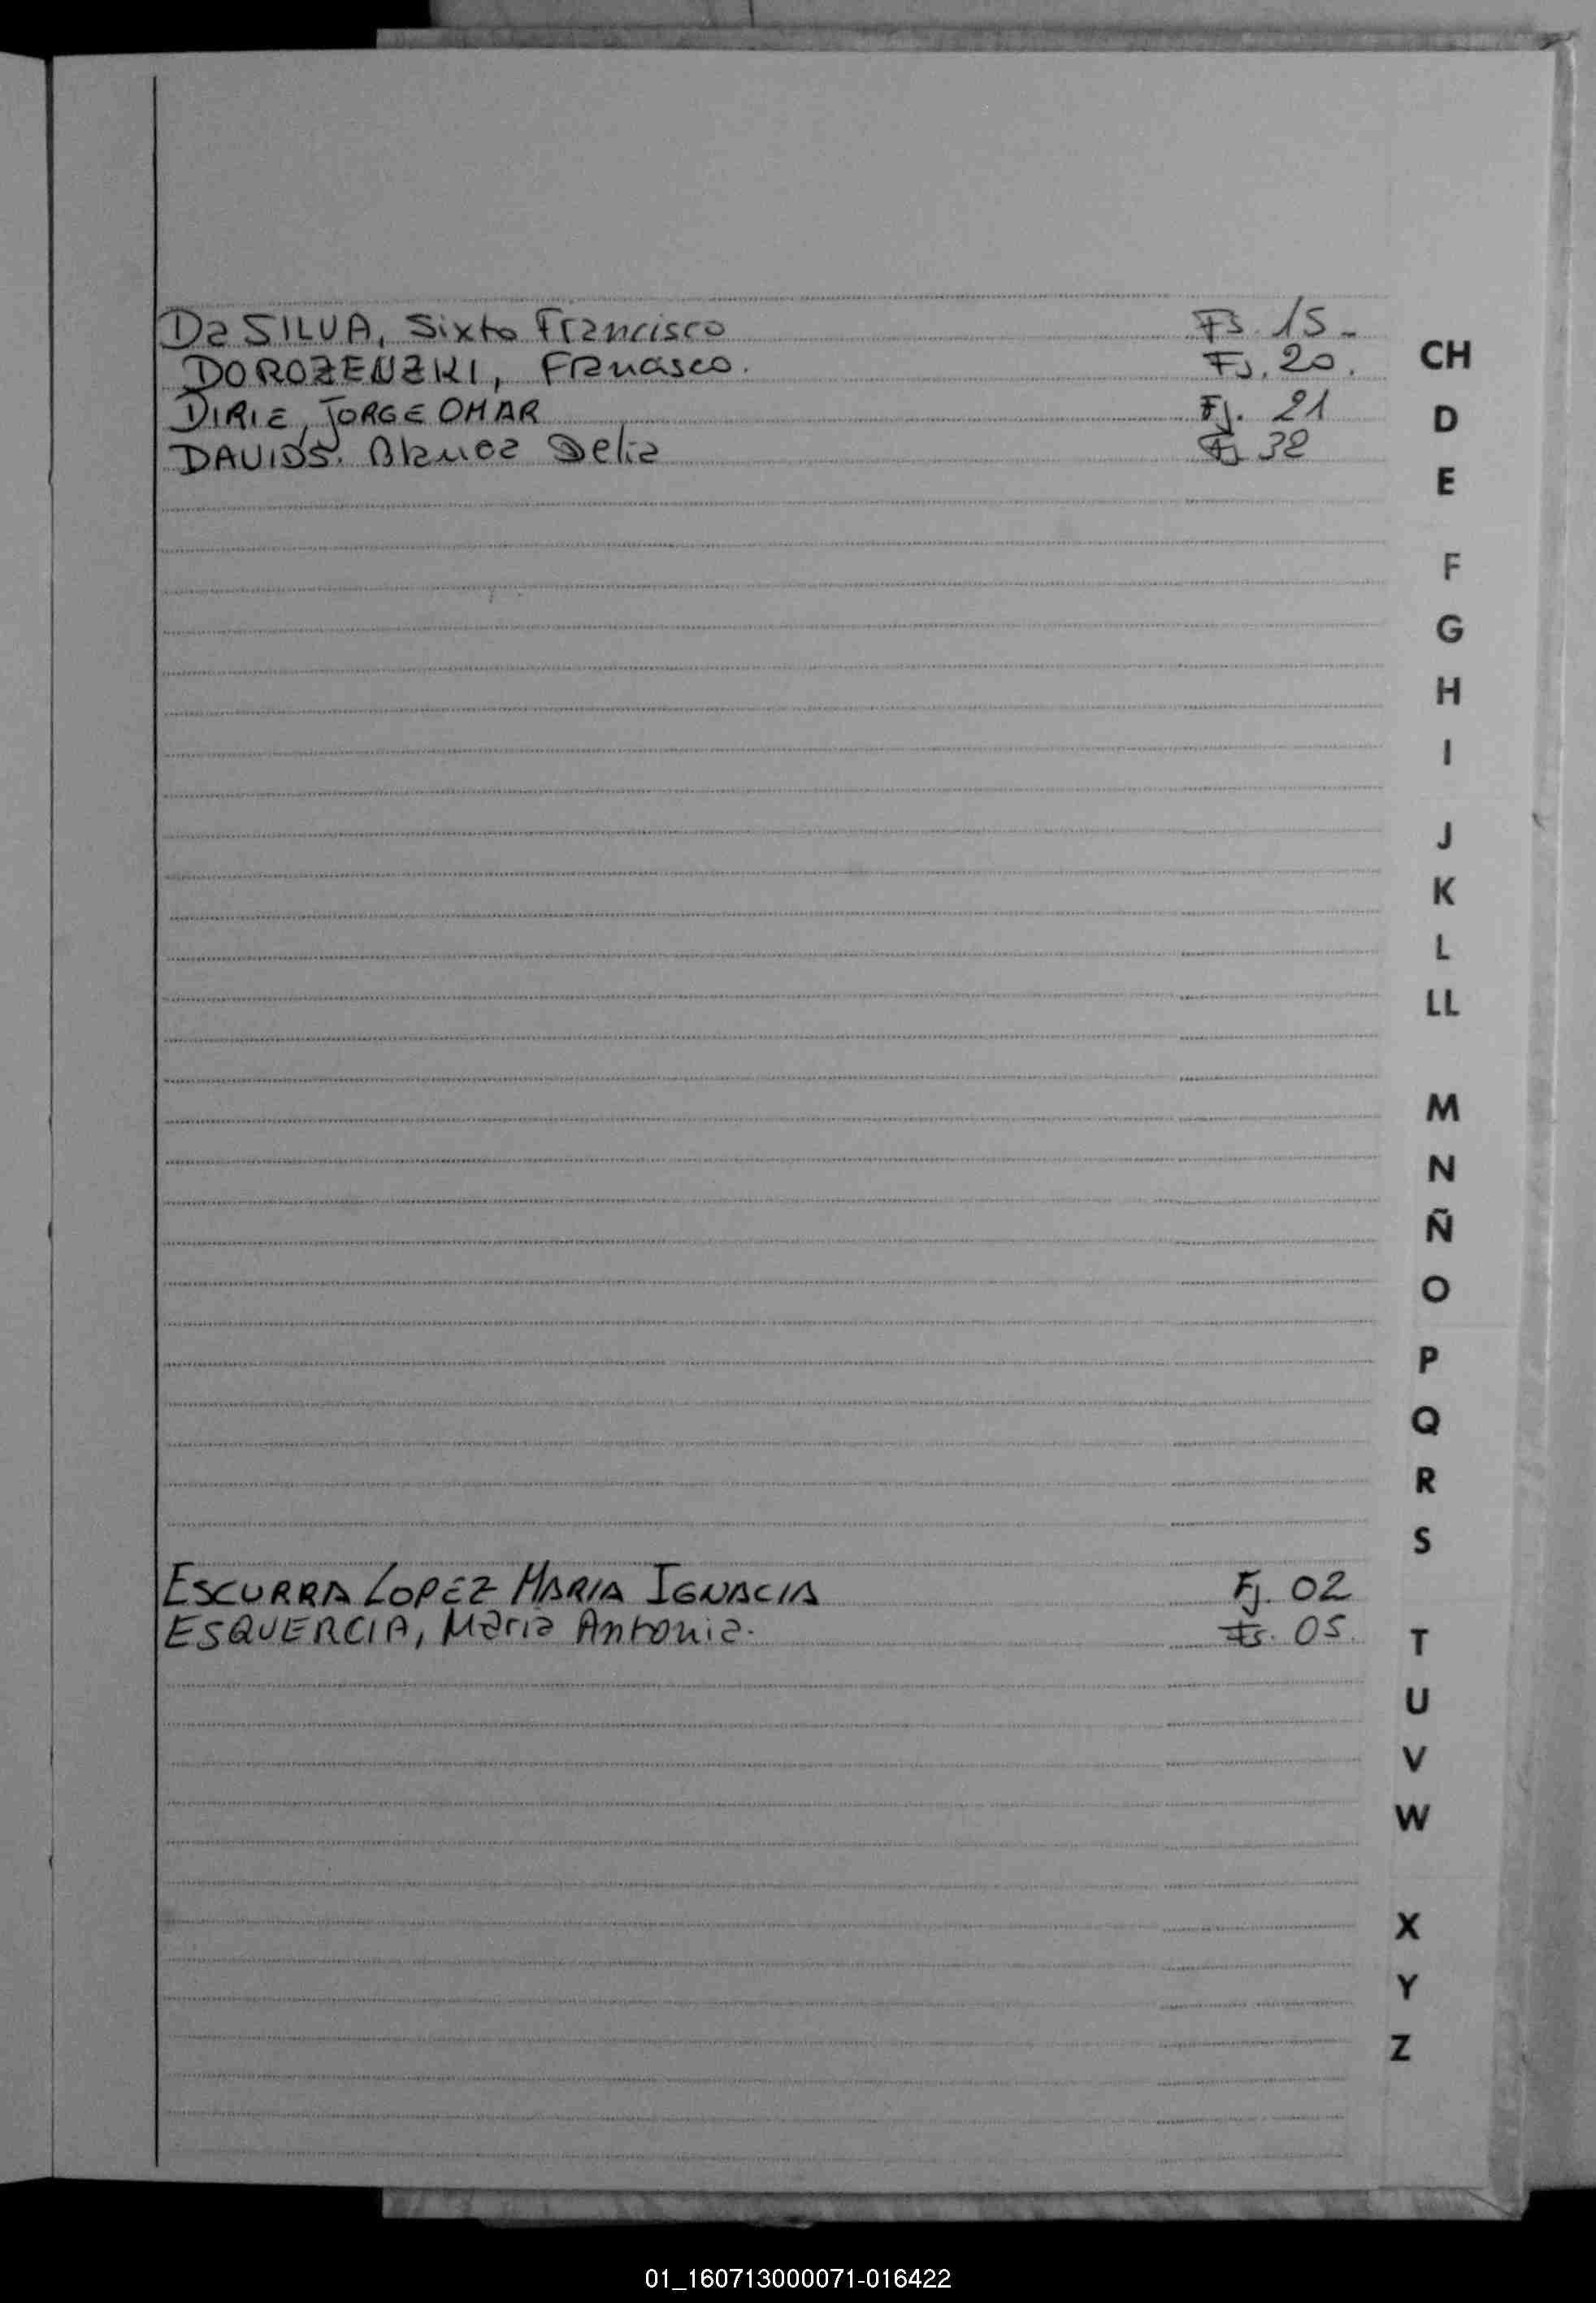 Da SILVA, Sixto Francisco Fs. 15-
DOROZENZKI, Francisco. Fs. 20.
CH
DIRIE, JORGE OMAR Fj. 21
D
DAVIDS. Blanca Delia Fs 38
E
F
G
H
I
J
K
L
LL
M
N
Ñ
O
P
Q
R
S
ESCURRA LOPEZ MARIA IGNACIA Fj. 02
ESQUERCIA, Maria Antonia. Fs. 05.
T
U
V
W
X
Y
Z
01_160713000071-016422